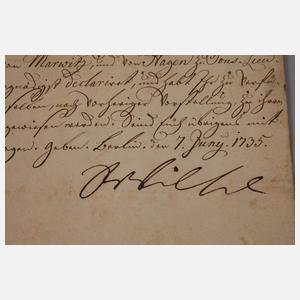 von Marwitz, und von Hagen zu Sous-Lieu-
gnädigst declariret, und habt Ihr zu verfü-
selben, nach vorheriger Vorstellung, zu ihren
gewiesen werden. Seind Euch übrigens mit
gen. Geben. Berlin. den 7. Juny. 1735.